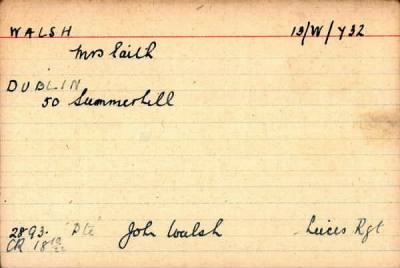 WALSH 13/W/732
Mrs
DUBLIN
50 Summerhill
2893. Pte John Walsh Leices Rgt
CR 18